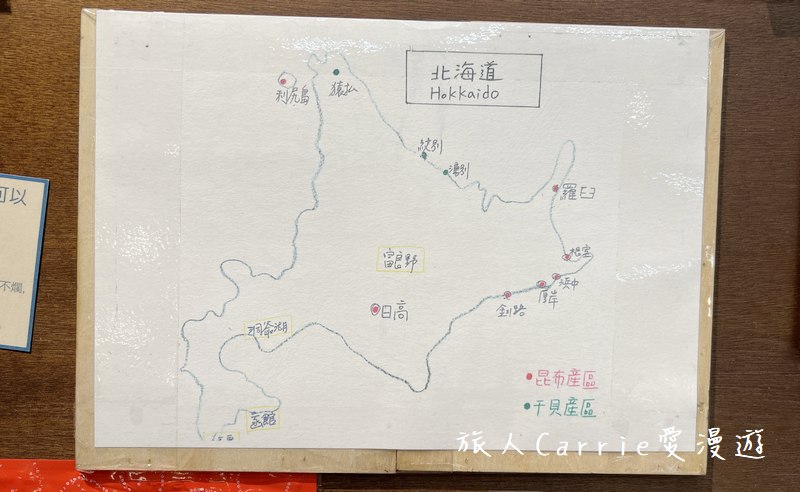 北海道
Hokkaido
利尻島
猿払
紋別
湧別
羅臼
可以
根室
富良野
浜中
不爛,
厚岸
釧路
日高
洞爺湖
昆布產區
干貝產區
函館
旅人Carrie愛漫遊